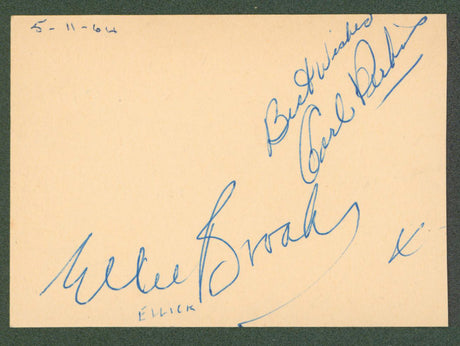 5-11-64
Best Wishes
Carl Perkins
Elkie Brooks
X
ELLICK